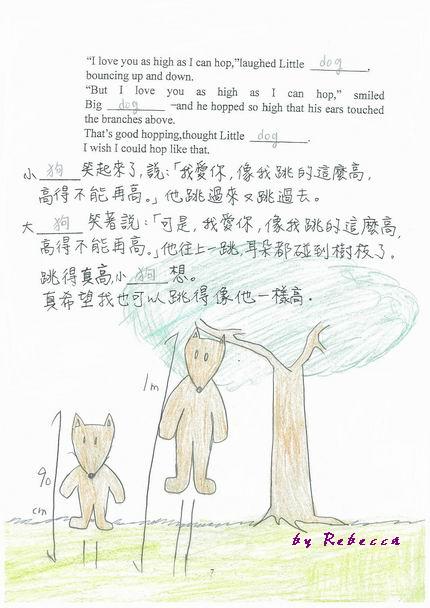 “I love you as high as I can hop,”laughed Little dog,
bouncing up and down.
“But I love you as high as I can hop,” smiled
Big dog –and he hopped so high that his ears touched
the branches above.
That's good hopping,thought Little dog.
I wish I could hop like that.
小 狗 笑起來了,說:「我愛你,像我跳的這麼高,
高得不能再高。」他跳過來又跳過去。
大 狗 笑著說:「可是,我愛你,像我跳的這麼高,
高得不能再高。」他往上一跳,耳朵都碰到樹枝了。
跳得真高,小 狗 想。
真希望我也可以跳得像他一樣高.
1m
90
cm
by Rebecca
7